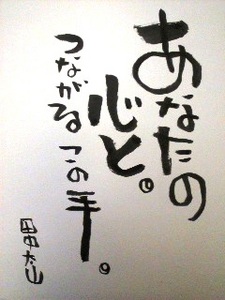 あなたの
心と。
つながる この手。
田中太山